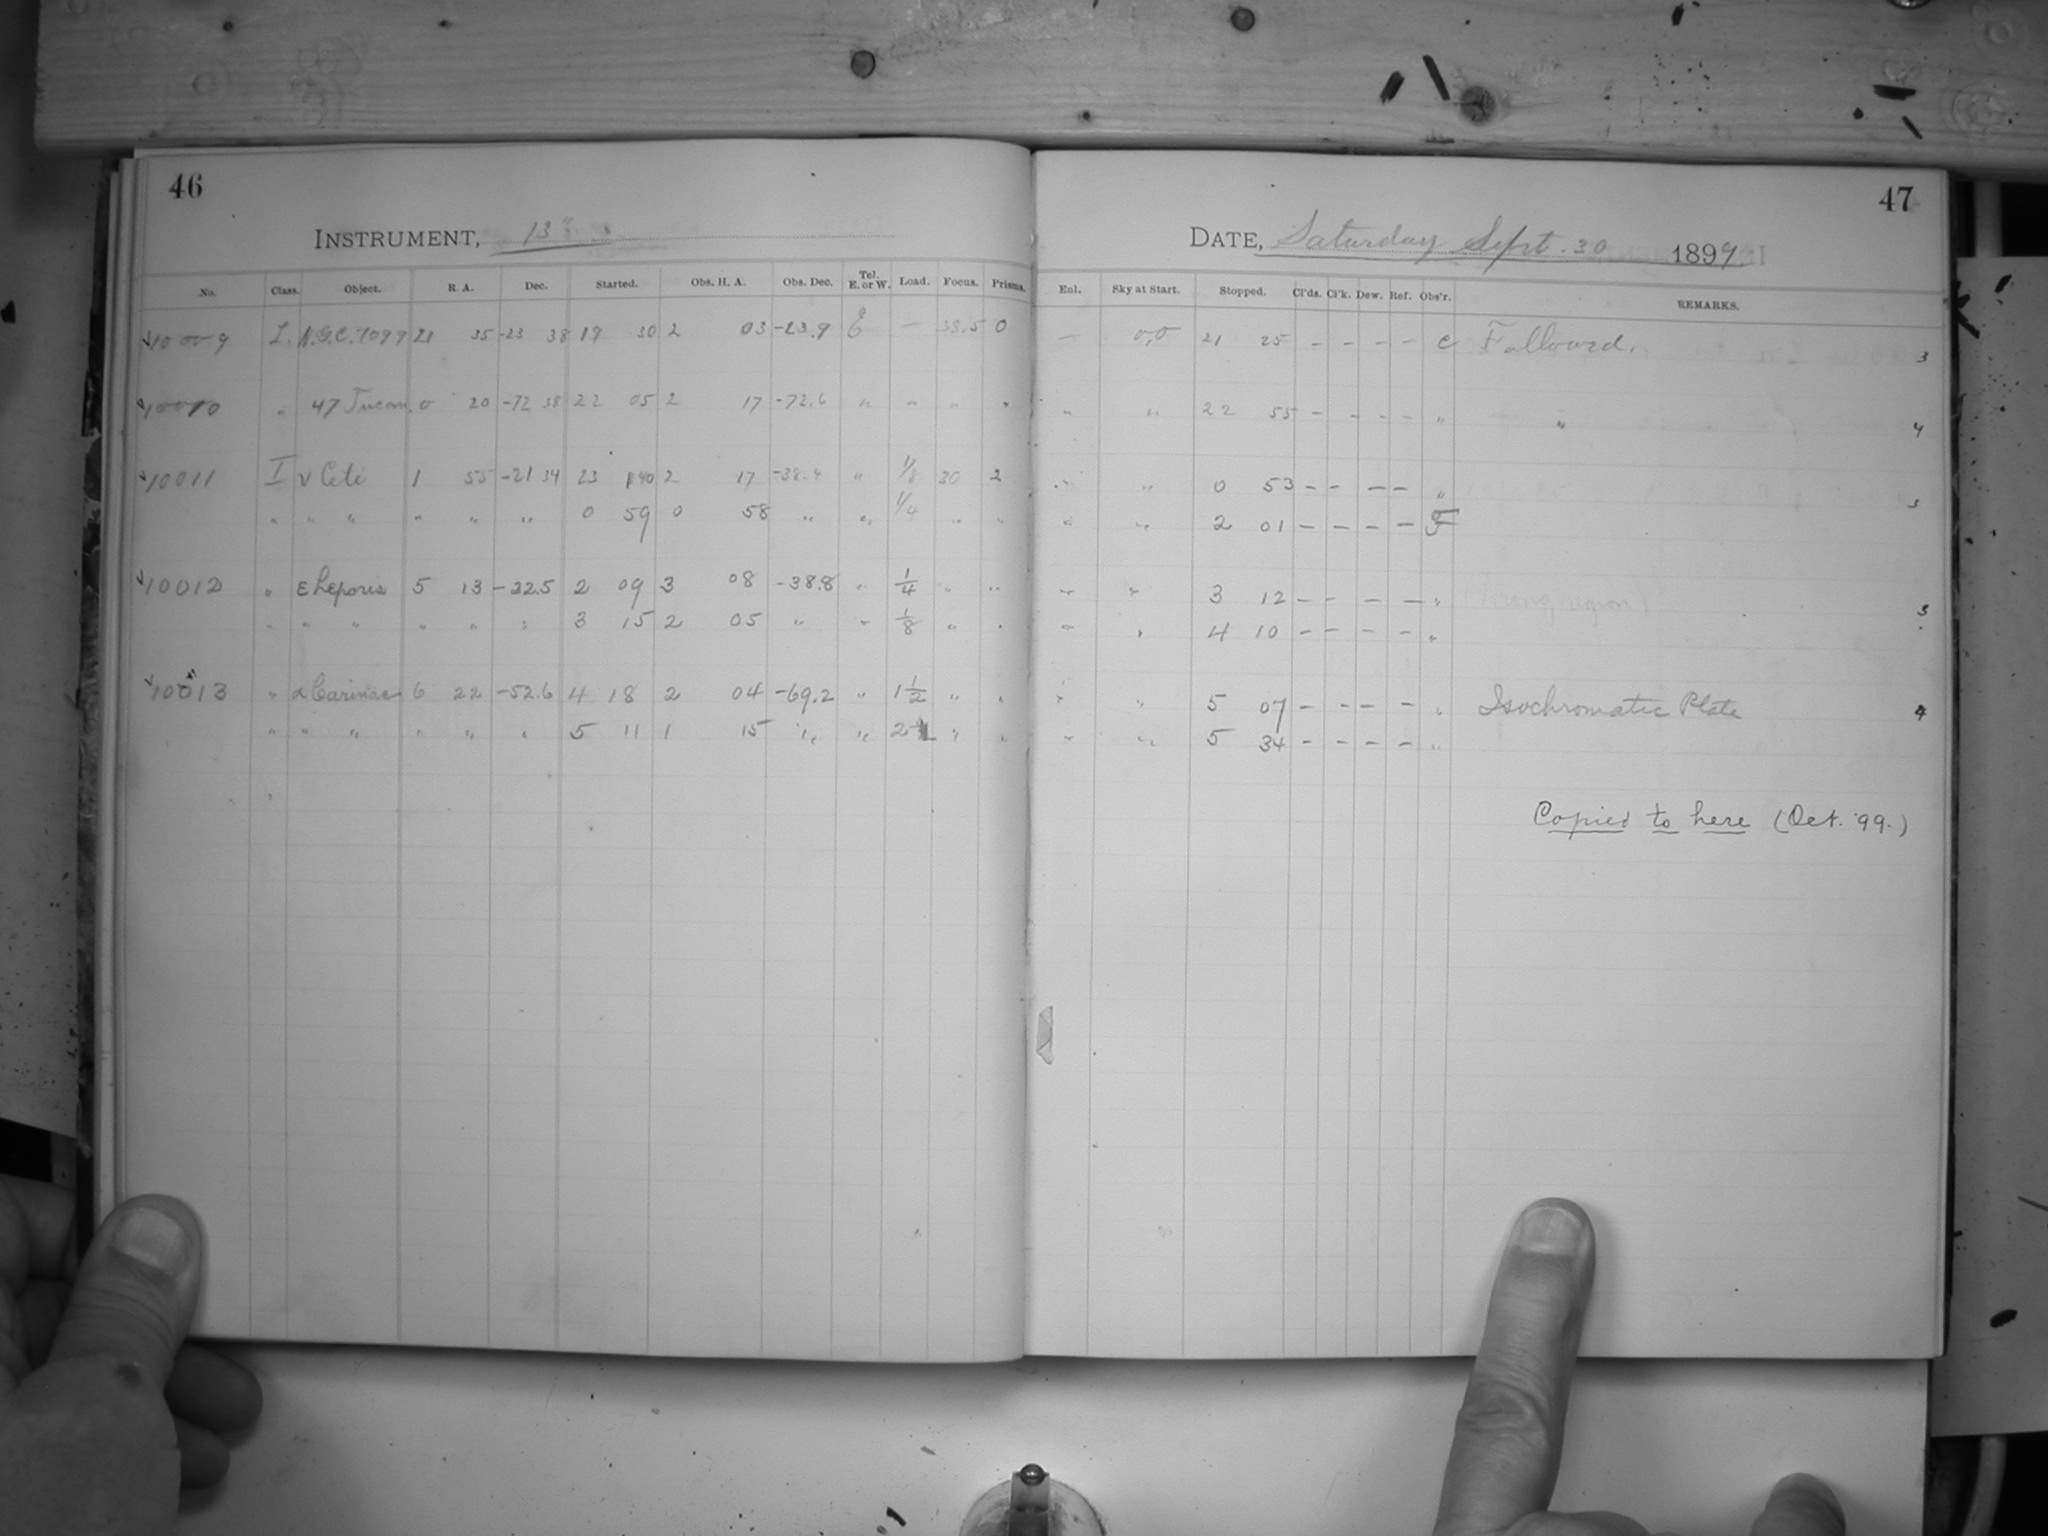 46
INSTRUMENT, 13
No. Class. Object. R. A. Dec. Started. Obs. H. A. Obs. Dec. Tel. E. or W. Load. Focus. Prisms.
10009 L. N.G.C. 7099 21 35 -23 38 19 30 2 03 -23.9 E — 38.5 0
10010 " 47 Tucan. 0 20 -72 38 22 05 2 17 -72.6 " " " "
10011 I ν Ceti 1 55 -21 34 23 40 2 17 -38.4 " 1/8 30 2
" " " " " " 0 59 0 58 " " 1/4 " "
10012 " ε Leporis 5 13 -22.5 2 09 3 08 -38.8 " 1/4 " "
" " " " " " 3 15 2 05 " " 1/8 " "
10013 " α Carinae 6 22 -52.6 4 18 2 04 -69.2 " 1 1/2 " "
" " " " " " 5 11 1 15 " " 2 " "
47
DATE, Saturday Sept. 30 1899
Eol. Sky at Start. Stopped. Cl'ds. Cl'k. Dew. Ref. Obs'r. REMARKS.
— 21 25 — — — — C Followed. 3
" " 22 55 — — — — " " 4
" " 0 53 — — — — "
" " 2 01 — — — — F
" " 3 12 — — — — " (Wrong region) 3
" " 4 10 — — — — "
" " 5 07 — — — — " Isochromatic Plate 4
" " 5 34 — — — — "
Copied to here (Oct. '99.)